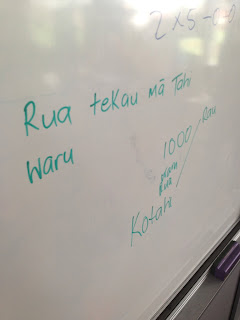 2 x 5 -
Rua tekau mā Tahi
Waru
1000
Rau
Rua
Kotahi